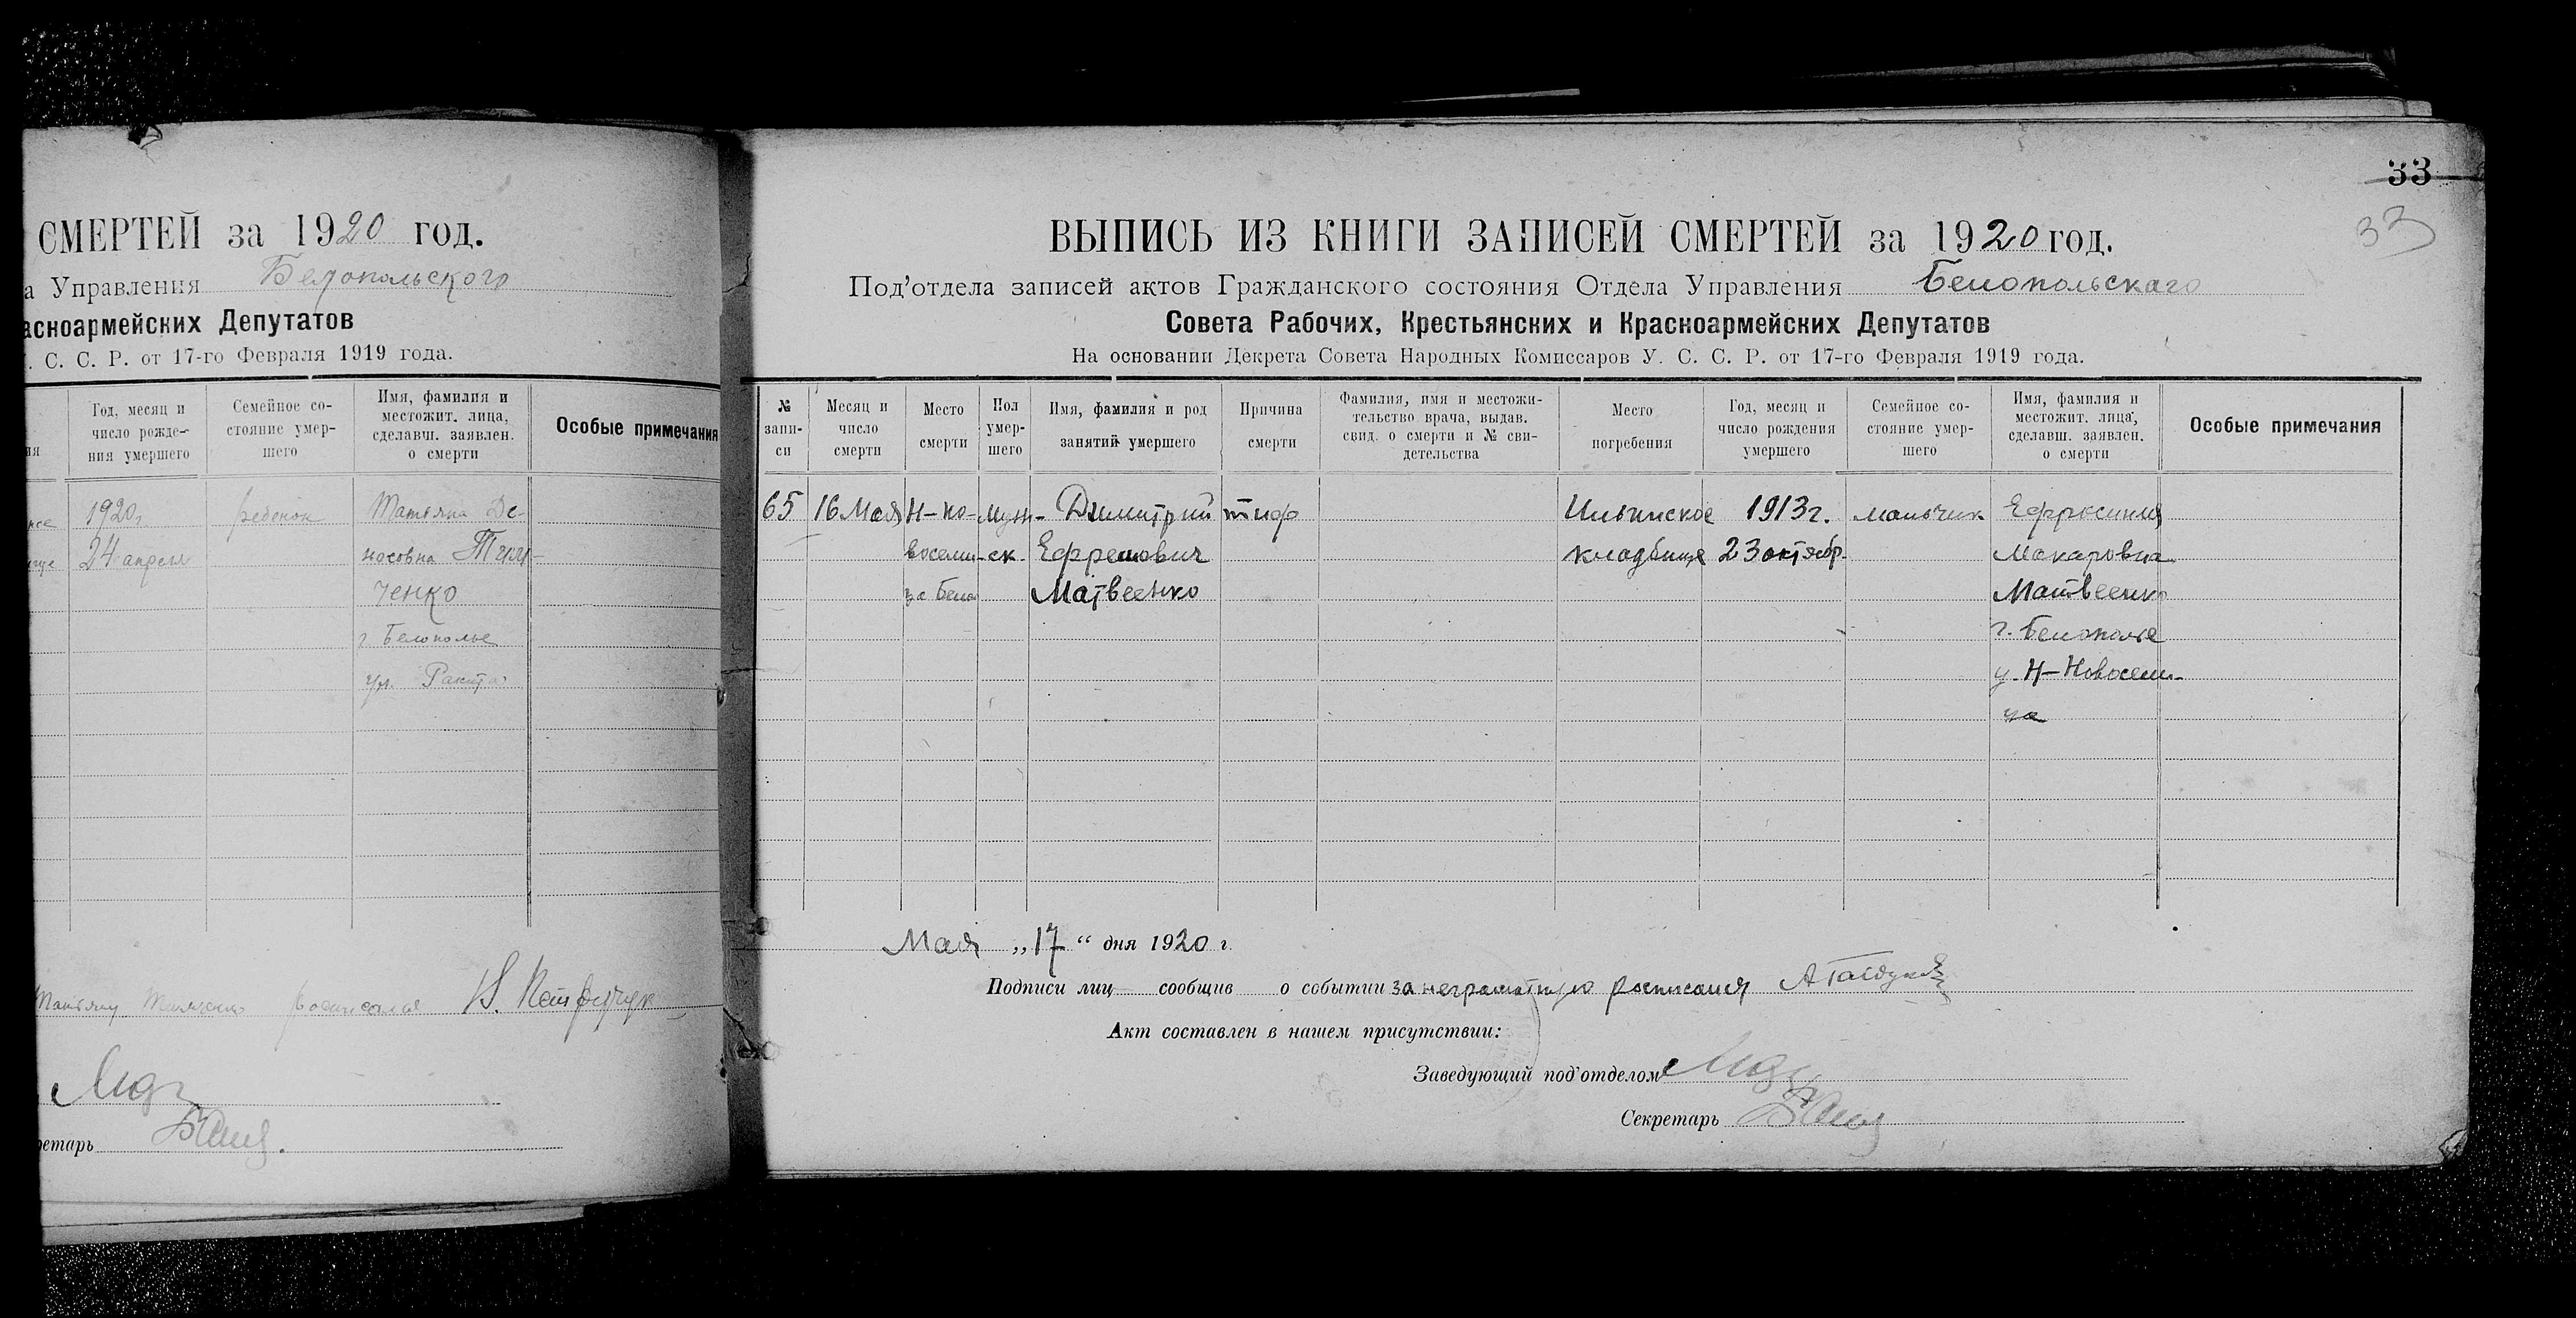 СМЕРТЕЙ за 1920 год.
а Управления Белопольского
асноармейских Депутатов
. С. С. Р. от 17-го Февраля 1919 года.
ия
Год, месяц и
число рожде-
ния умершего
Семейное со-
стояние умер-
шего
Имя, фамилия и
местожит. лица,
сделавш. заявлен.
о смерти
Особые примечания
1920г
24 апреля
ребенок
Татьяна
ченко
г. Белополье
ул.
етарь
33
33
ВЫПИСЬ ИЗ КНИГИ ЗАПИСЕЙ СМЕРТЕЙ за 1920 год.
Под'отдела записей актов Гражданского состояния Отдела Управления Белопольскаго
Совета Рабочих, Крестьянских и Красноармейских Депутатов
На основании Декрета Совета Народных Комиссаров У. С. С. Р. от 17-го Февраля 1919 года.
№
запи-
си
Месяц и
число
смерти
Место
смерти
Пол
умер-
шего
Имя, фамилия и род
занятий умершего
Причина
смерти
Фамилия, имя и местожи-
тельство врача, выдав.
свид. о смерти и № сви-
детельства
Место
погребения
Год, месяц и
число рождения
умершего
Семейное со-
стояние умер-
шего
Имя, фамилия и
местожит. лица,
сделавш. заявлен.
о смерти
Особые примечания
65
16 Мая
Н-но-
восели-
ца Бело
Муж-
ск.
Димитрий
Ефремович
Матвеенко
тиф
Ильинское
кладбище
1913г.
23 октябр.
мальчик
Ефросиния
Макаровна
Матвеенко
г. Белополье
у. Н-Новосели-
ца
Мая „17“ дня 1920 г.
Подписи лиц сообщив о событии за неграмотную росписался
Акт составлен в нашем присутствии:
Заведующий под'отделом
Секретарь